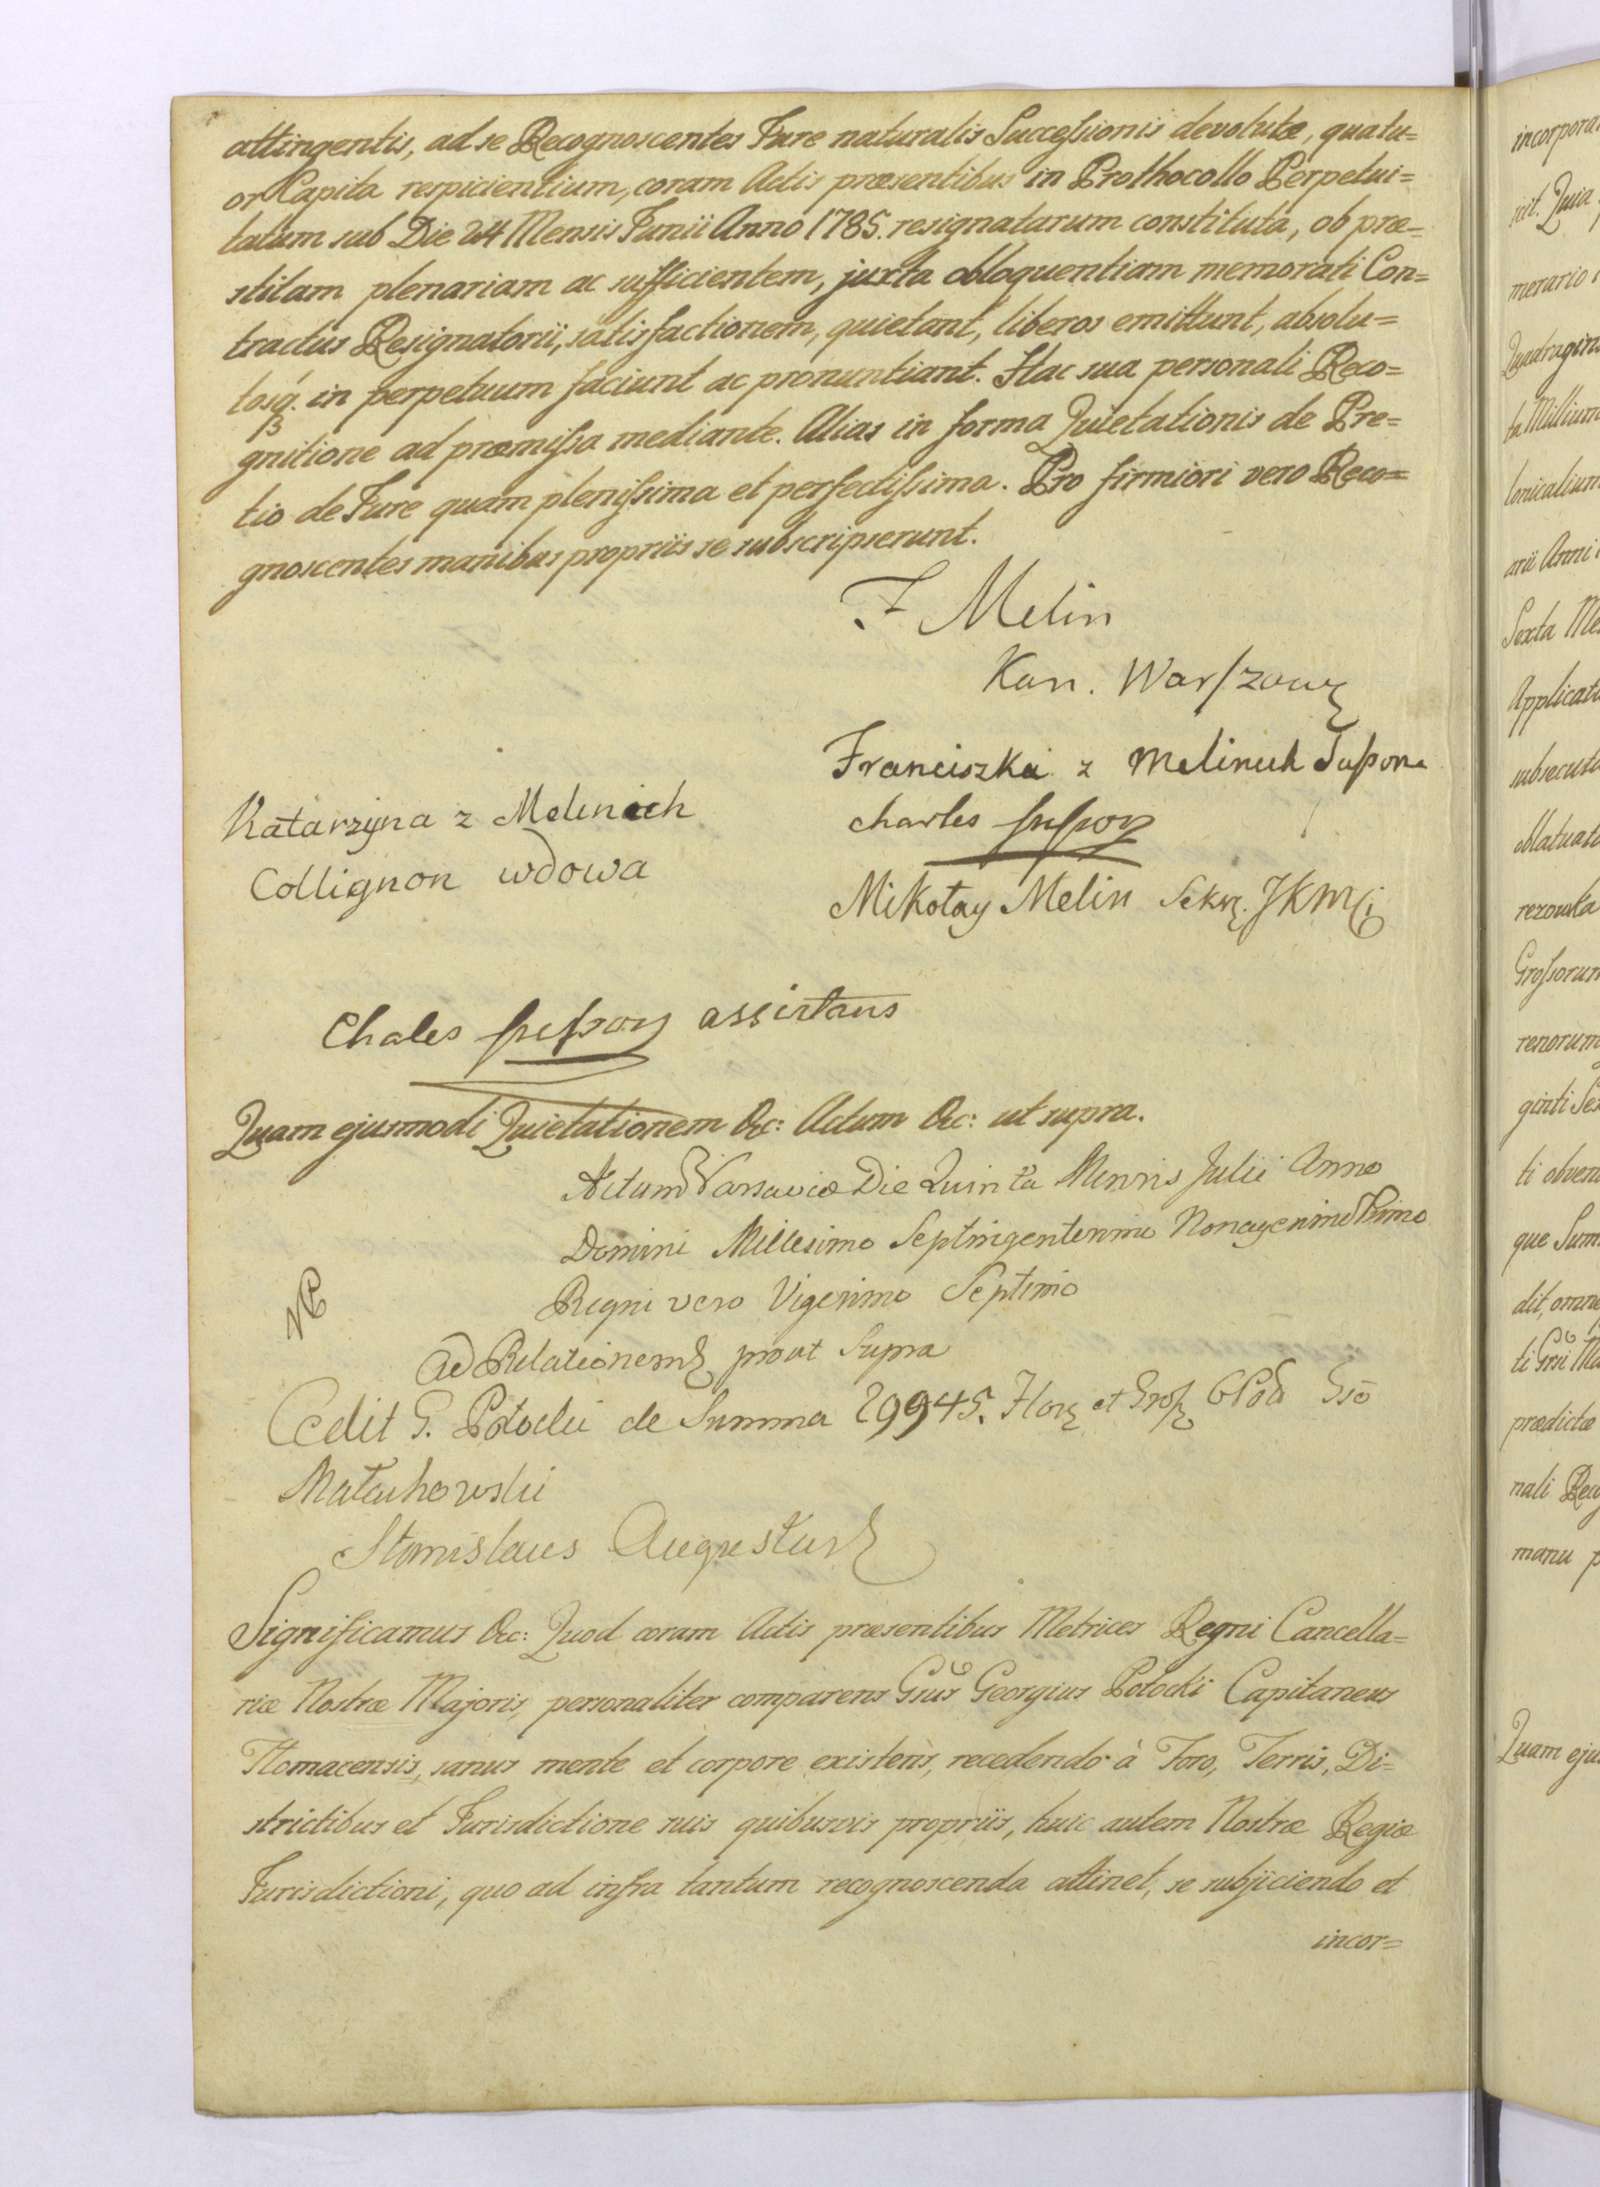 attingentis, ad se Recognoscentes Jure naturalis Successionis devolutæ, quatu=
or Capita respicientium, coram Actis præsentibus in Prothocollo Perpetui=
tatum sub Die 24 Mensis Junii Anno 1785. resignatarum constituta, ob præ=
stitam plenariam ac sufficientem, juxta obloquentiam memorati Con=
tractus Resignatorii, satisfactionem, quietant, liberos emittunt, absolu=
tosq. in perpetuum faciunt ac pronuntiant. Hac sua personali Reco=
gnitione ad præmissa mediante. Alias in forma Quietationis de Pre=
tio de Jure quam plenissima et perfectissima. Pro firmiori vero Reco=
gnoscentes manibus propriis se subscripserunt.
F Melin
Kan. Warszaw
Franciszka z Melinuh
Katarzyna z Melinich
charles
Collignon wdowa
Mikołay Melin Sekr. JKMci
Chales assistans
Quam ejusmodi Quietationem &c: Actum &c: ut supra.
Actum Varsaviæ Die Quinta Mensis Julii Anno
Domini Millesimo Septingentesimo Nonagesimo Primo
Regni vero Vigesimo Septimo
Ad Relationem prout Supra
Cedit G. Potocki de Summa 29945. Flor et Gros GPod Gsō
Małachowski
Stanislaus Augustus
Significamus &c: Quod coram Actis præsentibus Metrices Regni Cancella=
riæ Nostræ Majoris, personaliter comparens Gsūs Georgius Potocki Capitaneus
Tłomacensis, sanus mente et corpore existens, recedendo à Foro, Terris, Di=
strictibus et Jurisdictione suis quibusvis propriis, huic autem Nostræ Regiæ
Jurisdictioni, quo ad infra tantum recognoscenda attinet, se subjiciendo et
incor=
incorpora
Quia
merario
Quadragin
ta Millium
lonicalium
arii Anni
Sexta Me
Applicat
subsecut
oblatuat
Grossorum
renorum
ginti Sex
ti obven
que Sum
dit, omn
prædictæ
nali Reco
manu p
Quam eju